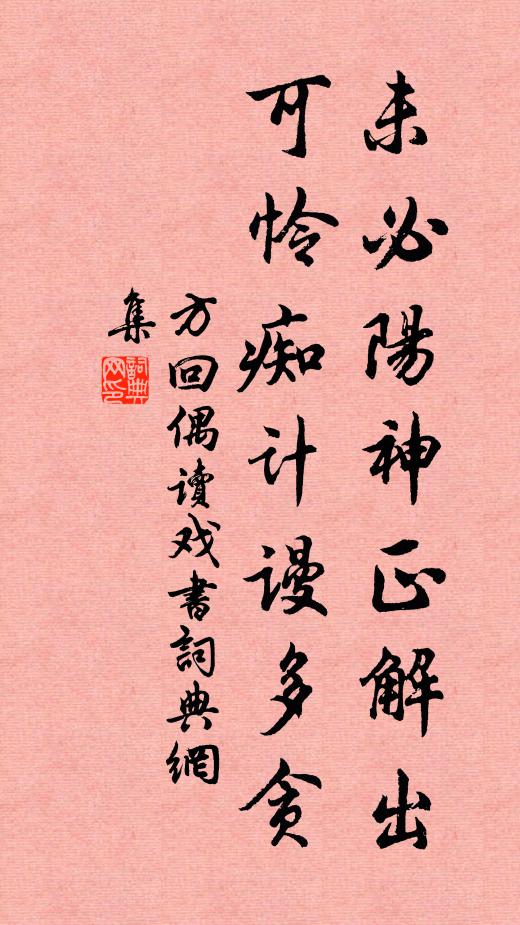 未必陽神正解出
可怜痴计謾多贪
方回偶读戏書詞典網
集
詞典
网印